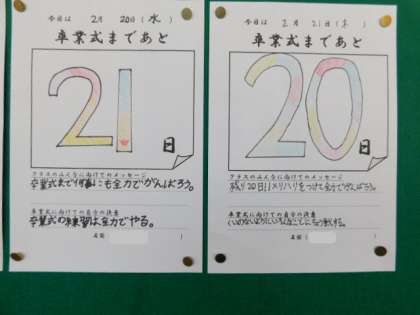 今日は 2月 20日(水)
卒業式まであと
21
日
クラスのみんなに向けてのメッセージ
卒業式まで何事にも全力でがんばろう。
卒業式に向けての自分の決意
卒業式の練習は全力でやる。
名前( )
今日は 2月 21日(木)
卒業式まであと
20
日
クラスのみんなに向けてのメッセージ
残り20日!!メリハリをつけて全力でがんばろう。
卒業式に向けての自分の決意
名前( )